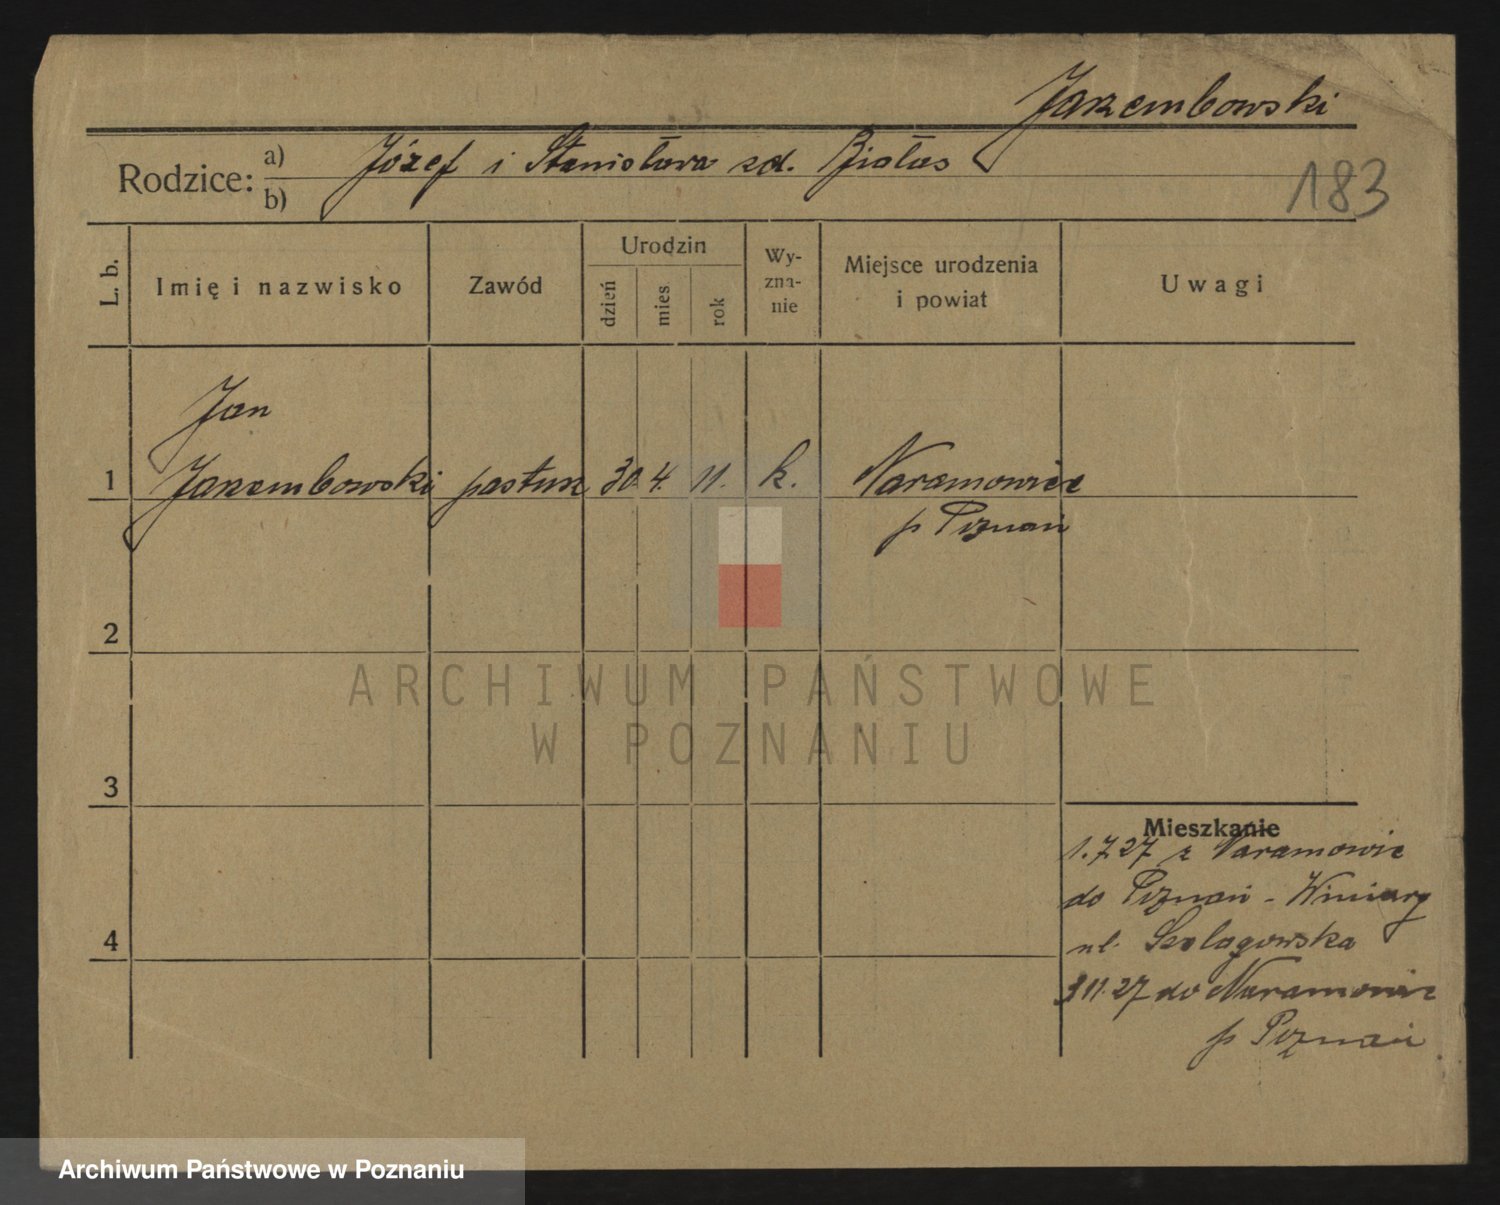 Jarzembowski
Rodzice: a) Józef i Stanisława zd. Białas
b)
183
L. b.
Imię i nazwisko
Zawód
Urodzin
dzień
mies.
rok
Wy-
zna-
nie
Miejsce urodzenia
i powiat
Uwagi
Jan
1 Jarzembowski pastusz 30. 4. 11. k. Naramowice
p Poznań
2
3
4
Mieszkanie
1.7.27 z Naramowic
do Poznań - Winiary
ul.
3 11.27 do Naramowic
p Poznań
ARCHIWUM PAŃSTWOWE
W POZNANIU
Archiwum Państwowe w Poznaniu